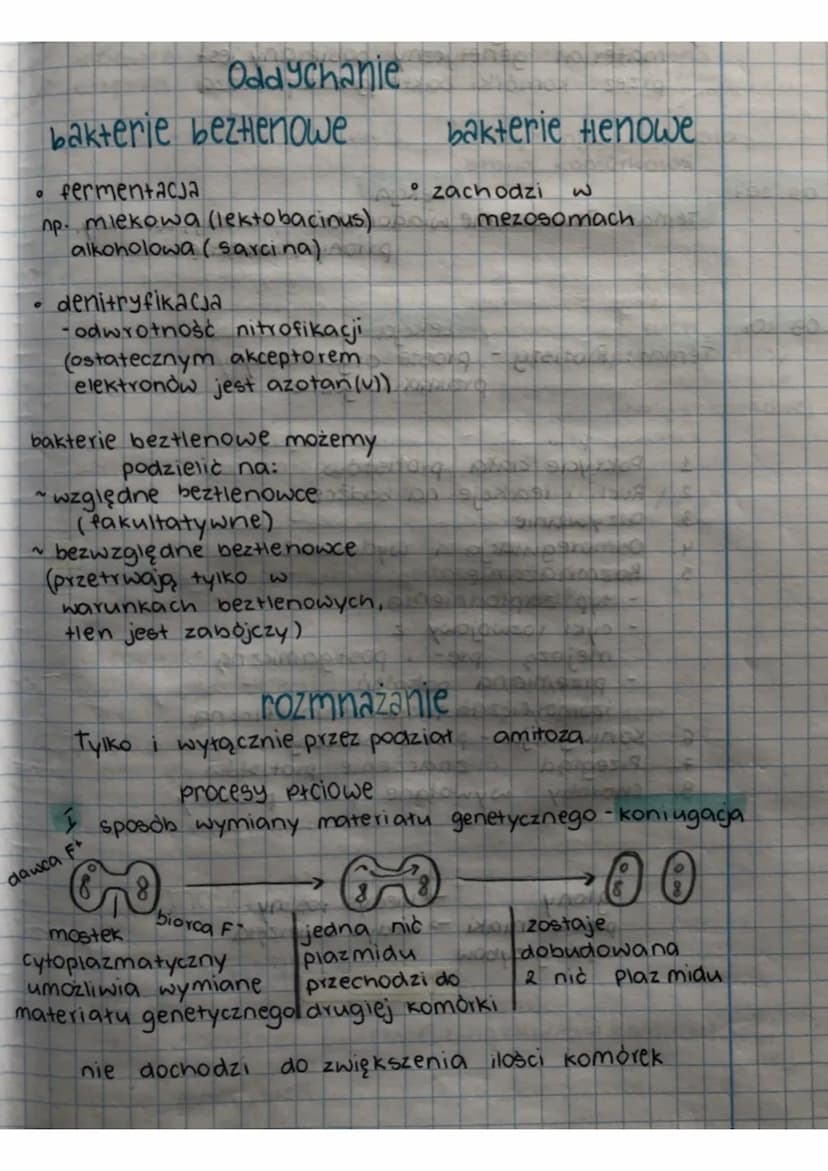 Oddychanie
bakterie beztlenowe
bakterie tlenowe
• fermentacja
np. mlekowa (lektobacinus)
alkoholowa (sarcina)
• zachodzi w
mezosomach
• denitryfikacja
- odwrotność nitrofikacji
(ostatecznym akceptorem
elektronów jest azotan(v))
bakterie beztlenowe możemy
podzielić na:
~ względne beztlenowce
(fakultatywne)
~ bezwzględne beztlenowce
(przetrwają tylko w
warunkach beztlenowych,
tlen jest zabójczy)
rozmnażanie
Tylko i wyłącznie przez podział amitoza
procesy płciowe
I sposób wymiany materiału genetycznego - koniugacja
dawca F+
biorca F-
mostek
cytoplazmatyczny
umożliwia wymiane
materiału genetycznego
jedna nić
plazmidu
przechodzi do
drugiej komórki
zostaje
dobudowana
2 nić plazmidu
nie dochodzi do zwiększenia ilości komórek